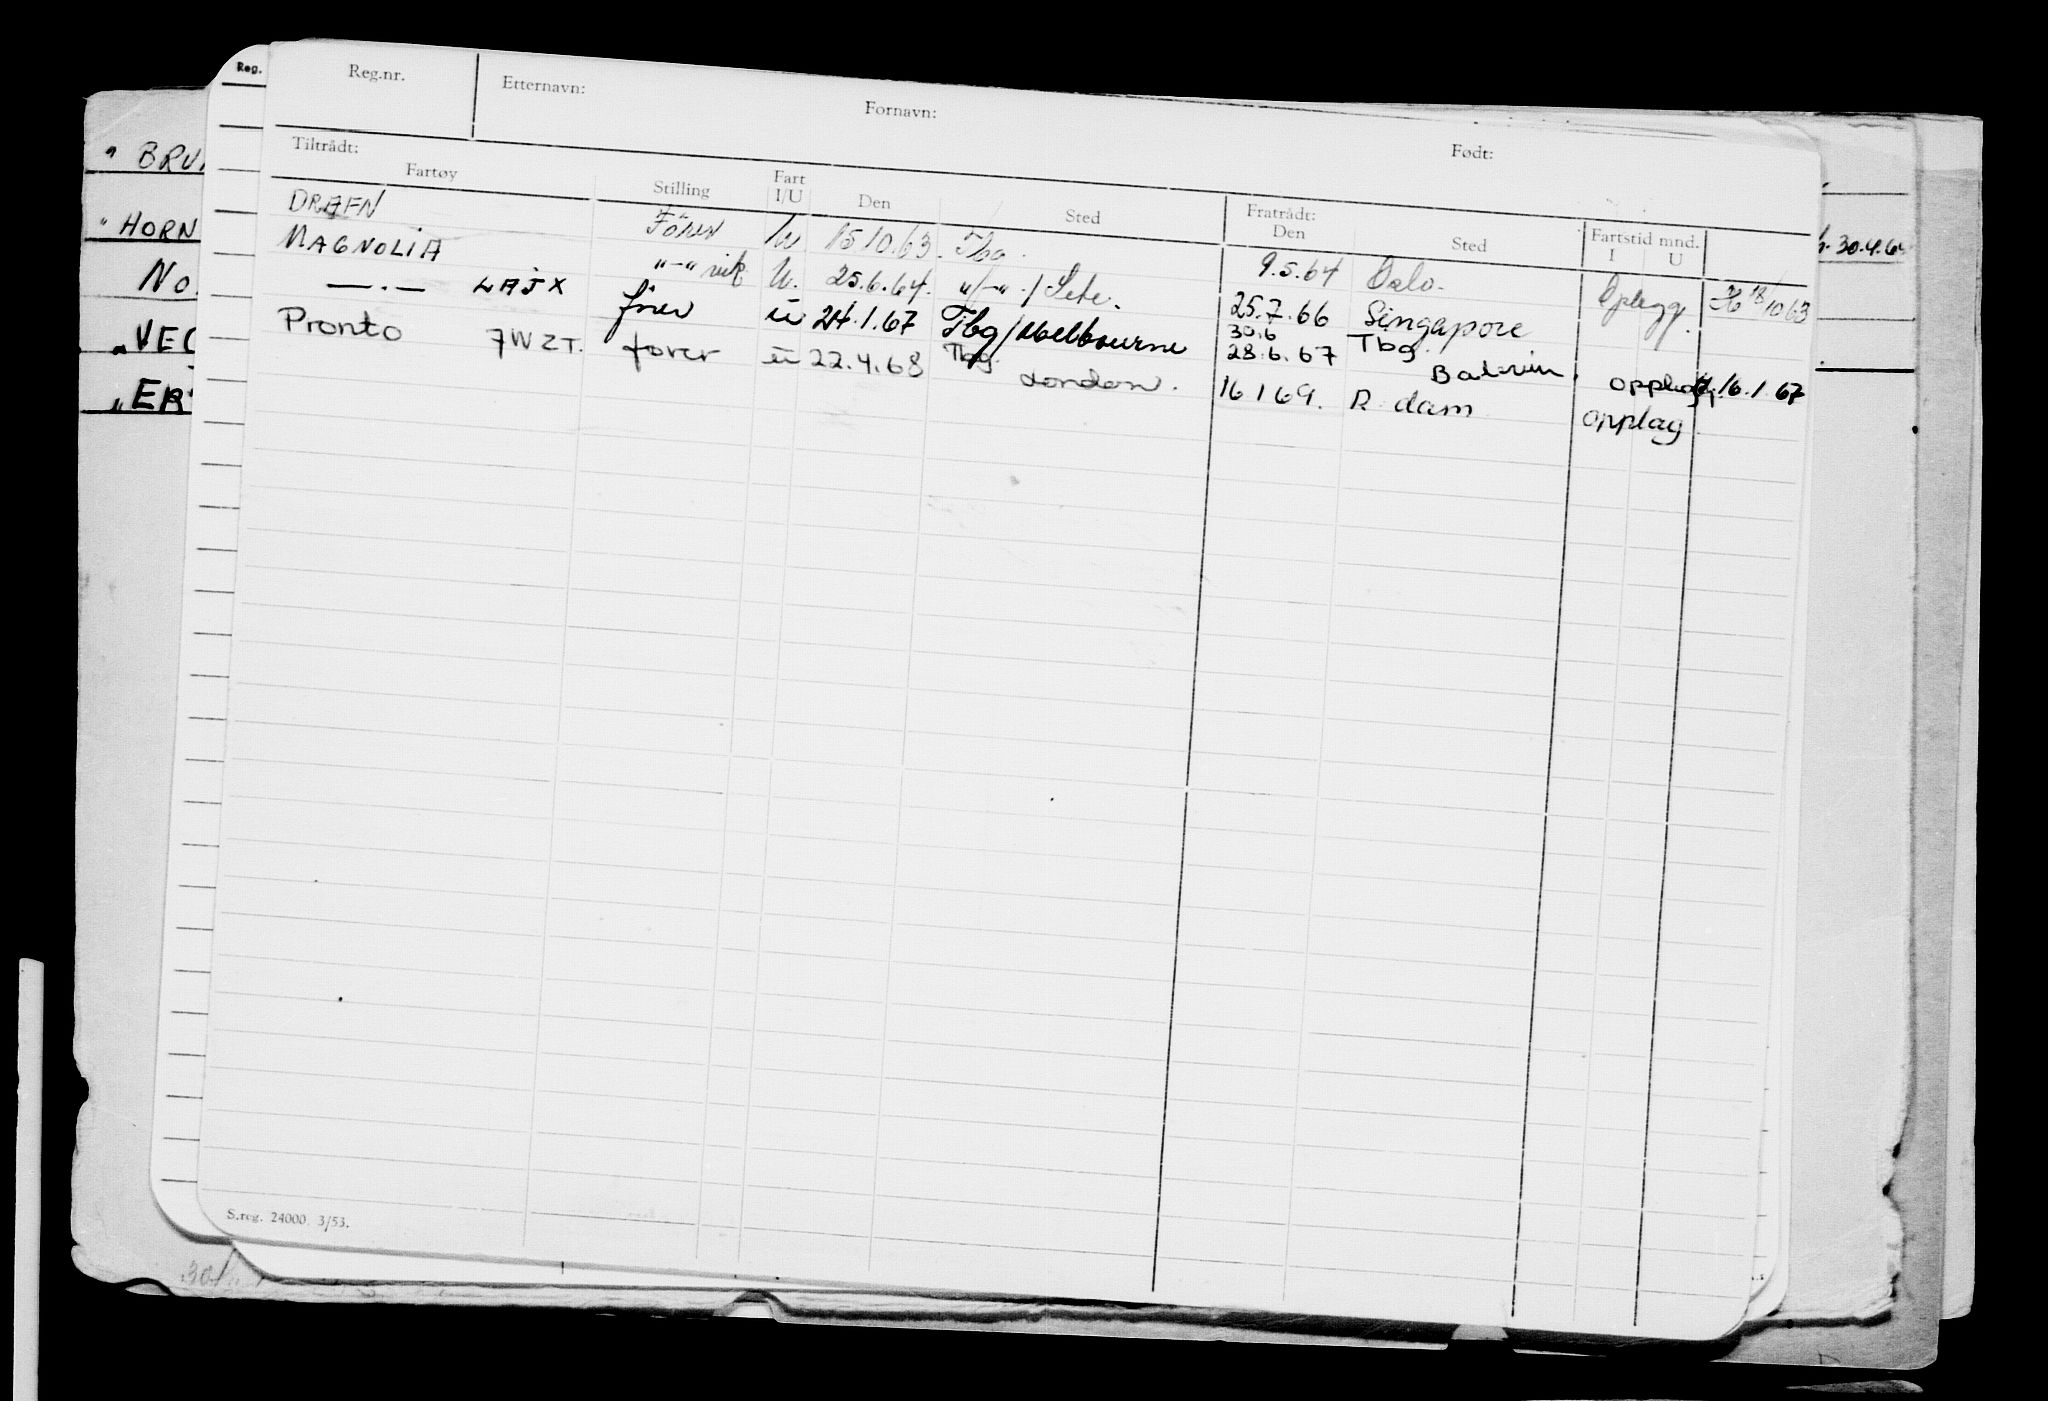 Reg.
Reg.nr. Etternavn: Fornavn: Født:
Tiltrådt: Fratrådt:
Fartøy Stilling Fart I/U Den Sted Den Sted Fartstid mnd. I U
DRAFN Förer U 15 10.63. Tbg. 9.5.64 Oslo. Oplagg. 18/10 63
MAGNOLIA "-" vik. U. 25.6.64. "-" / Sete. 25.7.66 Singapore
—.— LAJX förer ū 24.1.67 Tbg/Melbourne 30.6 28.6.67 Tbg. Bahrein. opplagg. 16.1.67
Pronto JWZT. fører ū 22.4.68 Tbg. London. 16 1 69. R.dam opplag
" BRU
" HORN
30.4.6
No.
"VE
"ER
S.reg. 24000. 3/53.
30/